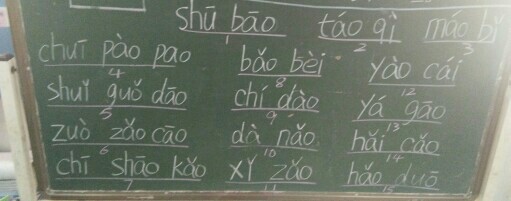 shū bāo táo qì máo bǐ
1 2 3
chuī pào pao bǎo bèi yào cái
4 8 12
shuǐ guǒ dāo chí dào yá gāo
5 9 13
zuò zǎo cāo dà nǎo hǎi cǎo
6 10 14
chī shāo kǎo xǐ zǎo hǎo duō
7 11 15